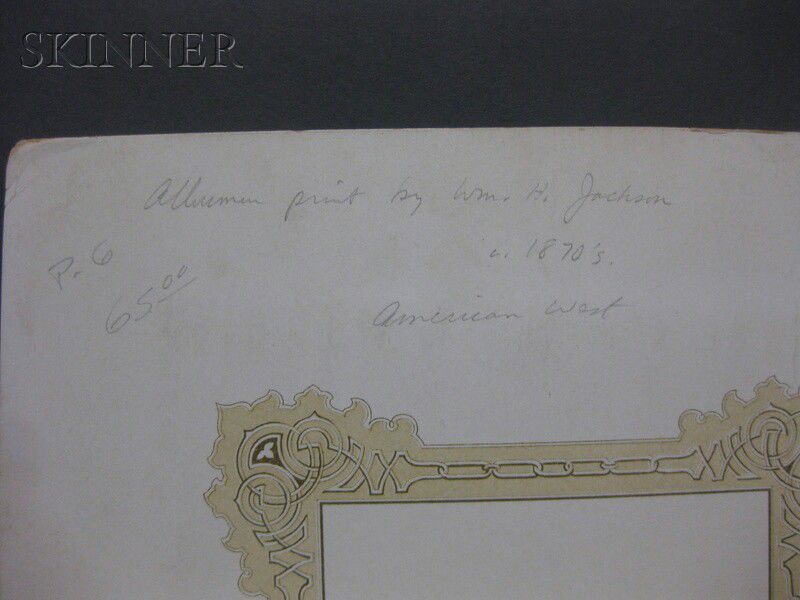 SKINNER
Albumen print by Wm. H. Jackson
c. 1870's.
P. 6
65.00
American West